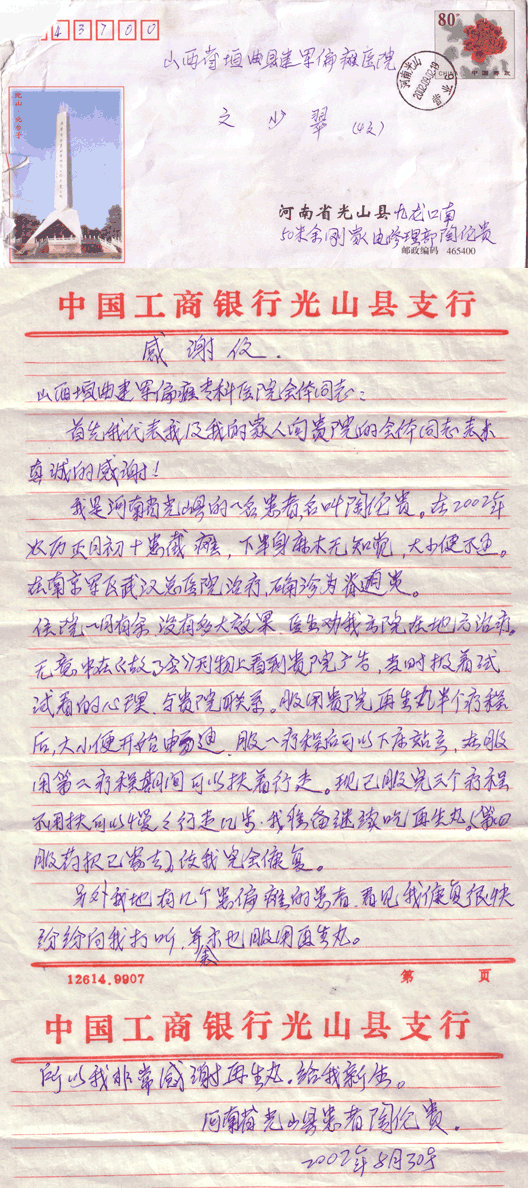 43700
80分
中国邮政
CHINA
河南光山
2002.09.02.19
营业
山西省垣曲县建军偏瘫医院
文少翠(收)
光山·光台子
河南省光山县九龙口南
50米余刚家电修理部陶伦贵
邮政编码 465400
中国工商银行光山县支行
感谢信.
山西垣曲建军偏瘫专科医院全体同志:
首先我代表我及我的家人向贵院的全体同志表示
真诚的感谢!
我是河南省光山县的一名患者,名叫陶伦贵。在2002年
农历正月初十患截瘫,下半身麻木无知觉,大小便不通。
在南京军区武汉总医院治疗,确诊为脊髓炎。
住院一月有余,没有多大效果.医生劝我出院在地方治疗。
无意中在《故事会》刊物上看到贵院广告,当时报着试
试看的心理,与贵院联系。服用贵院再生丸半个疗程
后,大小便开始畅通,服一疗程后可以下床站立,在服
用第二疗程期间可以扶着行走。现已服完三个疗程
不用扶可以慢慢行走几步.我准备继续吃再生丸。(第四
服药款已寄去)使我完全康复。
另外我地有几个患偏瘫的患者,看见我康复很快
纷纷向我打听,并要求也服用再生丸。
12614.9907 第 页
中国工商银行光山县支行
所以我非常感谢再生丸.给我新生。
河南省光山县患者陶伦贵.
2002年8月30号